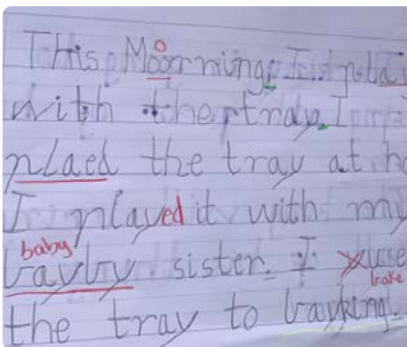 This Moorning, I
with the tray. I
plaed the tray at h
I played it with my
baby
bayby sister. I use
bake
the tray to bayking.